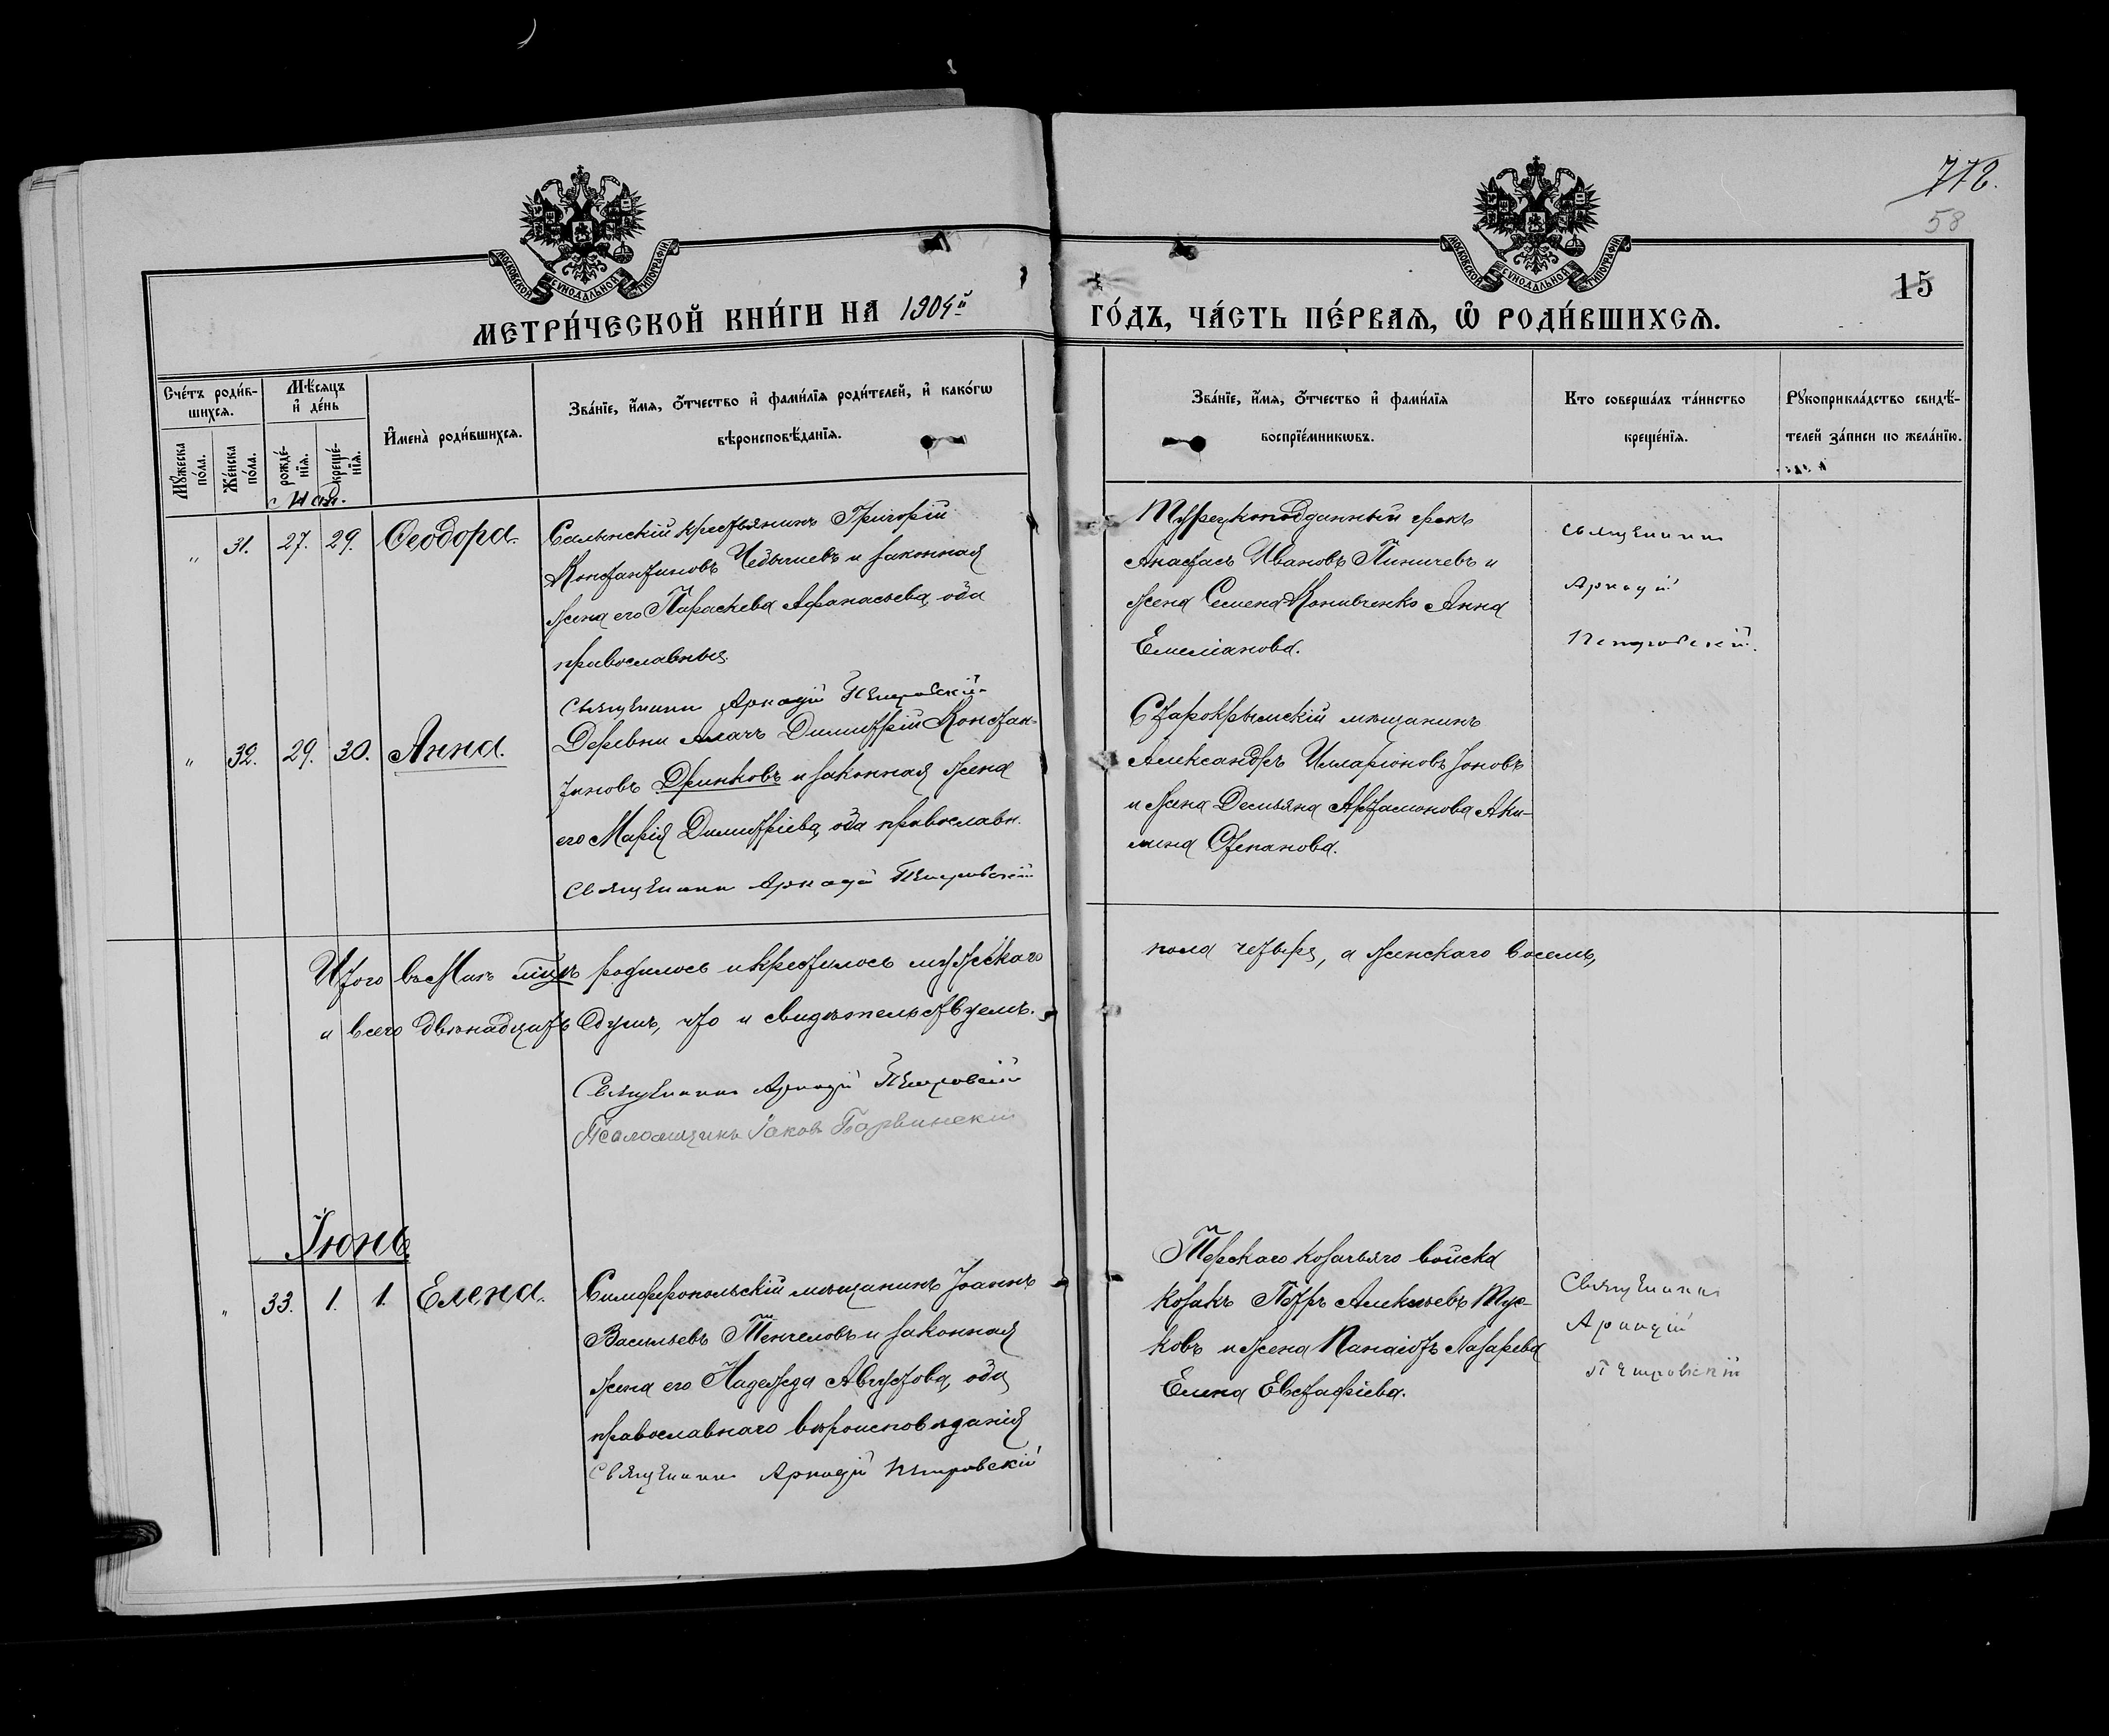 712.
58
15
МОСКОВСКОЙ СѴНОДАЛЬНОЙ ТИПОГРАФІИ
МОСКОВСКОЙ СѴНОДАЛЬНОЙ ТИПОГРАФІИ
МЕТРИ́ЧЕСКОЙ КНИ́ГИ НА 1904й
ГО́ДЪ, ЧА́СТЬ ПЕ́РВАѦ, Ѡ҆ РОДИ́ВШИХСѦ.
Сче́тъ роди́в-
шихсѧ.
Мѣ́сѧцъ
и҆ де́нь
Мꙋ́жеска
по́ла.
Же́нска
по́ла.
рожде́-
нїѧ.
креще́-
нїѧ.
И҆мена̀ роди́вшихсѧ.
Зва́нїе, и҆́мѧ, ѻ҆́тчество и҆ фами́лїѧ роди́телей, и҆ како́гѡ
вѣроисповѣ́данїѧ.
Зва́нїе, и҆́мѧ, ѻ҆́тчество и҆ фами́лїѧ
воспрїе́мникѡвъ.
Кто соверша́лъ та́инство
креще́нїѧ.
Рꙋкоприкла́дство свидѣ́-
телей за́писи по жела́нїю.
Май.
" 31. 27. 29. Ѳеодора.
Салынскій крестьянинъ Григорій
Константиновъ и законная
жена его Параскева Афанасьева, оба
православные.
Священник Аркадій Петровскій
Турецкоподданный грекъ
Анастасъ Ивановъ Пиничевъ и
жена Семена Кониченко Анна
Емеліанова.
Священник
Аркадій
Петровскій.
" 32. 29. 30. Анна.
Деревни Алачъ Димитрій Констан-
тиновъ Дринковъ и законная жена
его Марія Димитріева, оба православн.
Священник Аркадій Петровскій
Старокрымскій мѣщанинъ
Александръ Илларіоновъ Іоновъ
и жена Демьяна Артамонова Аки-
лина Степанова.
Итого въ Маѣ мѣсяцѣ родилось и крестилось мужескаго
пола четыре, а женскаго восемь,
а всего двѣнадцать душъ, что и свидѣтельствуемъ.
Священник Аркадій Петровскій
Псаломщикъ Іаковъ Барвинскій
Іюнь
" 33. 1. 1. Елена.
Симферопольскій мѣщанинъ Іоаннъ
Васильевъ Тенчеловъ и законная
жена его Надежда Августова, оба
православнаго вѣроисповѣданія
Священник Аркадій Петровскій
Терскаго козачьяго войска
козакъ Петръ Алексѣевъ Тус-
ковъ и жена Панаіотъ Лазарева
Елена Евстафіева.
Священник
Аркадій
Петровскій